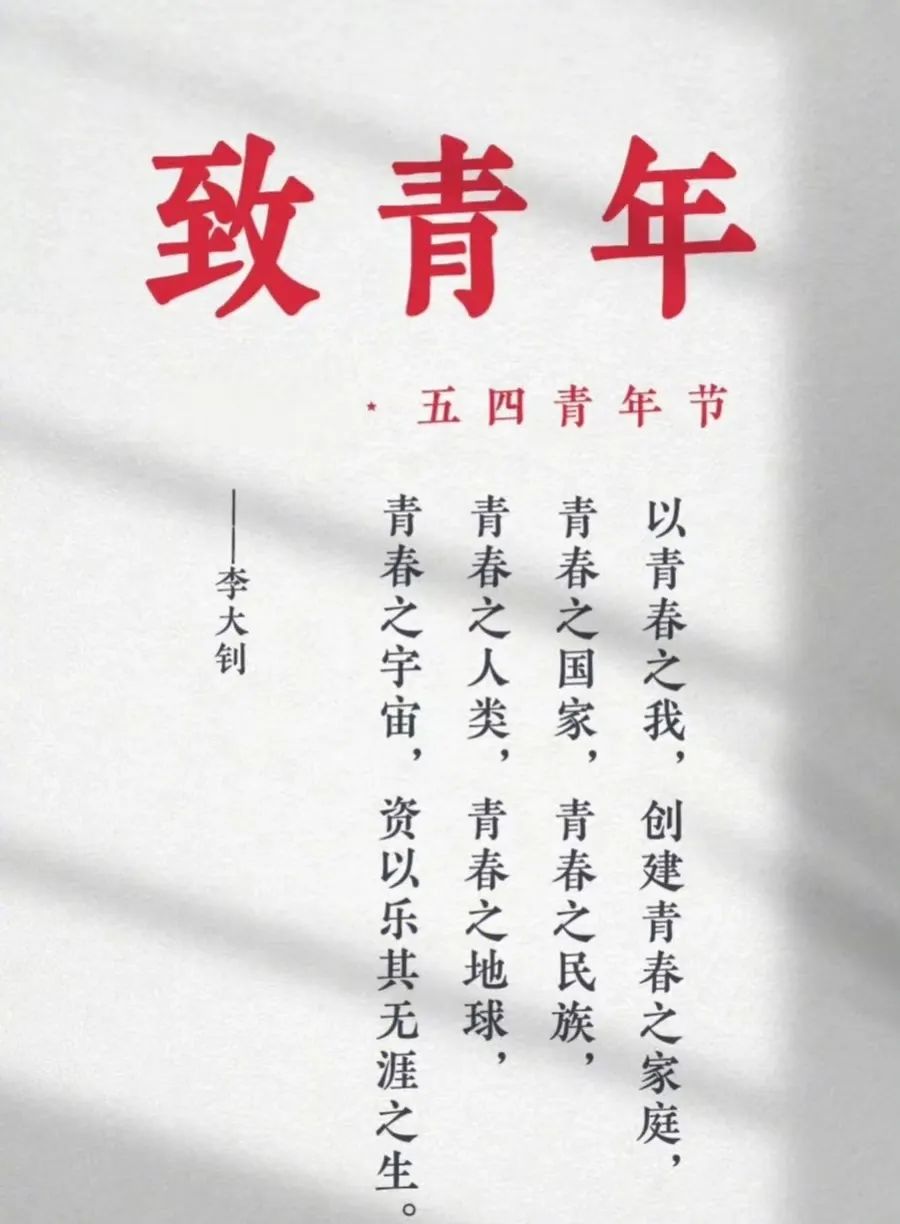 致青年
★ 五四青年节
以青春之我，创建青春之家庭，
青春之国家，青春之民族，
青春之人类，青春之地球，
青春之宇宙，资以乐其无涯之生。
——李大钊